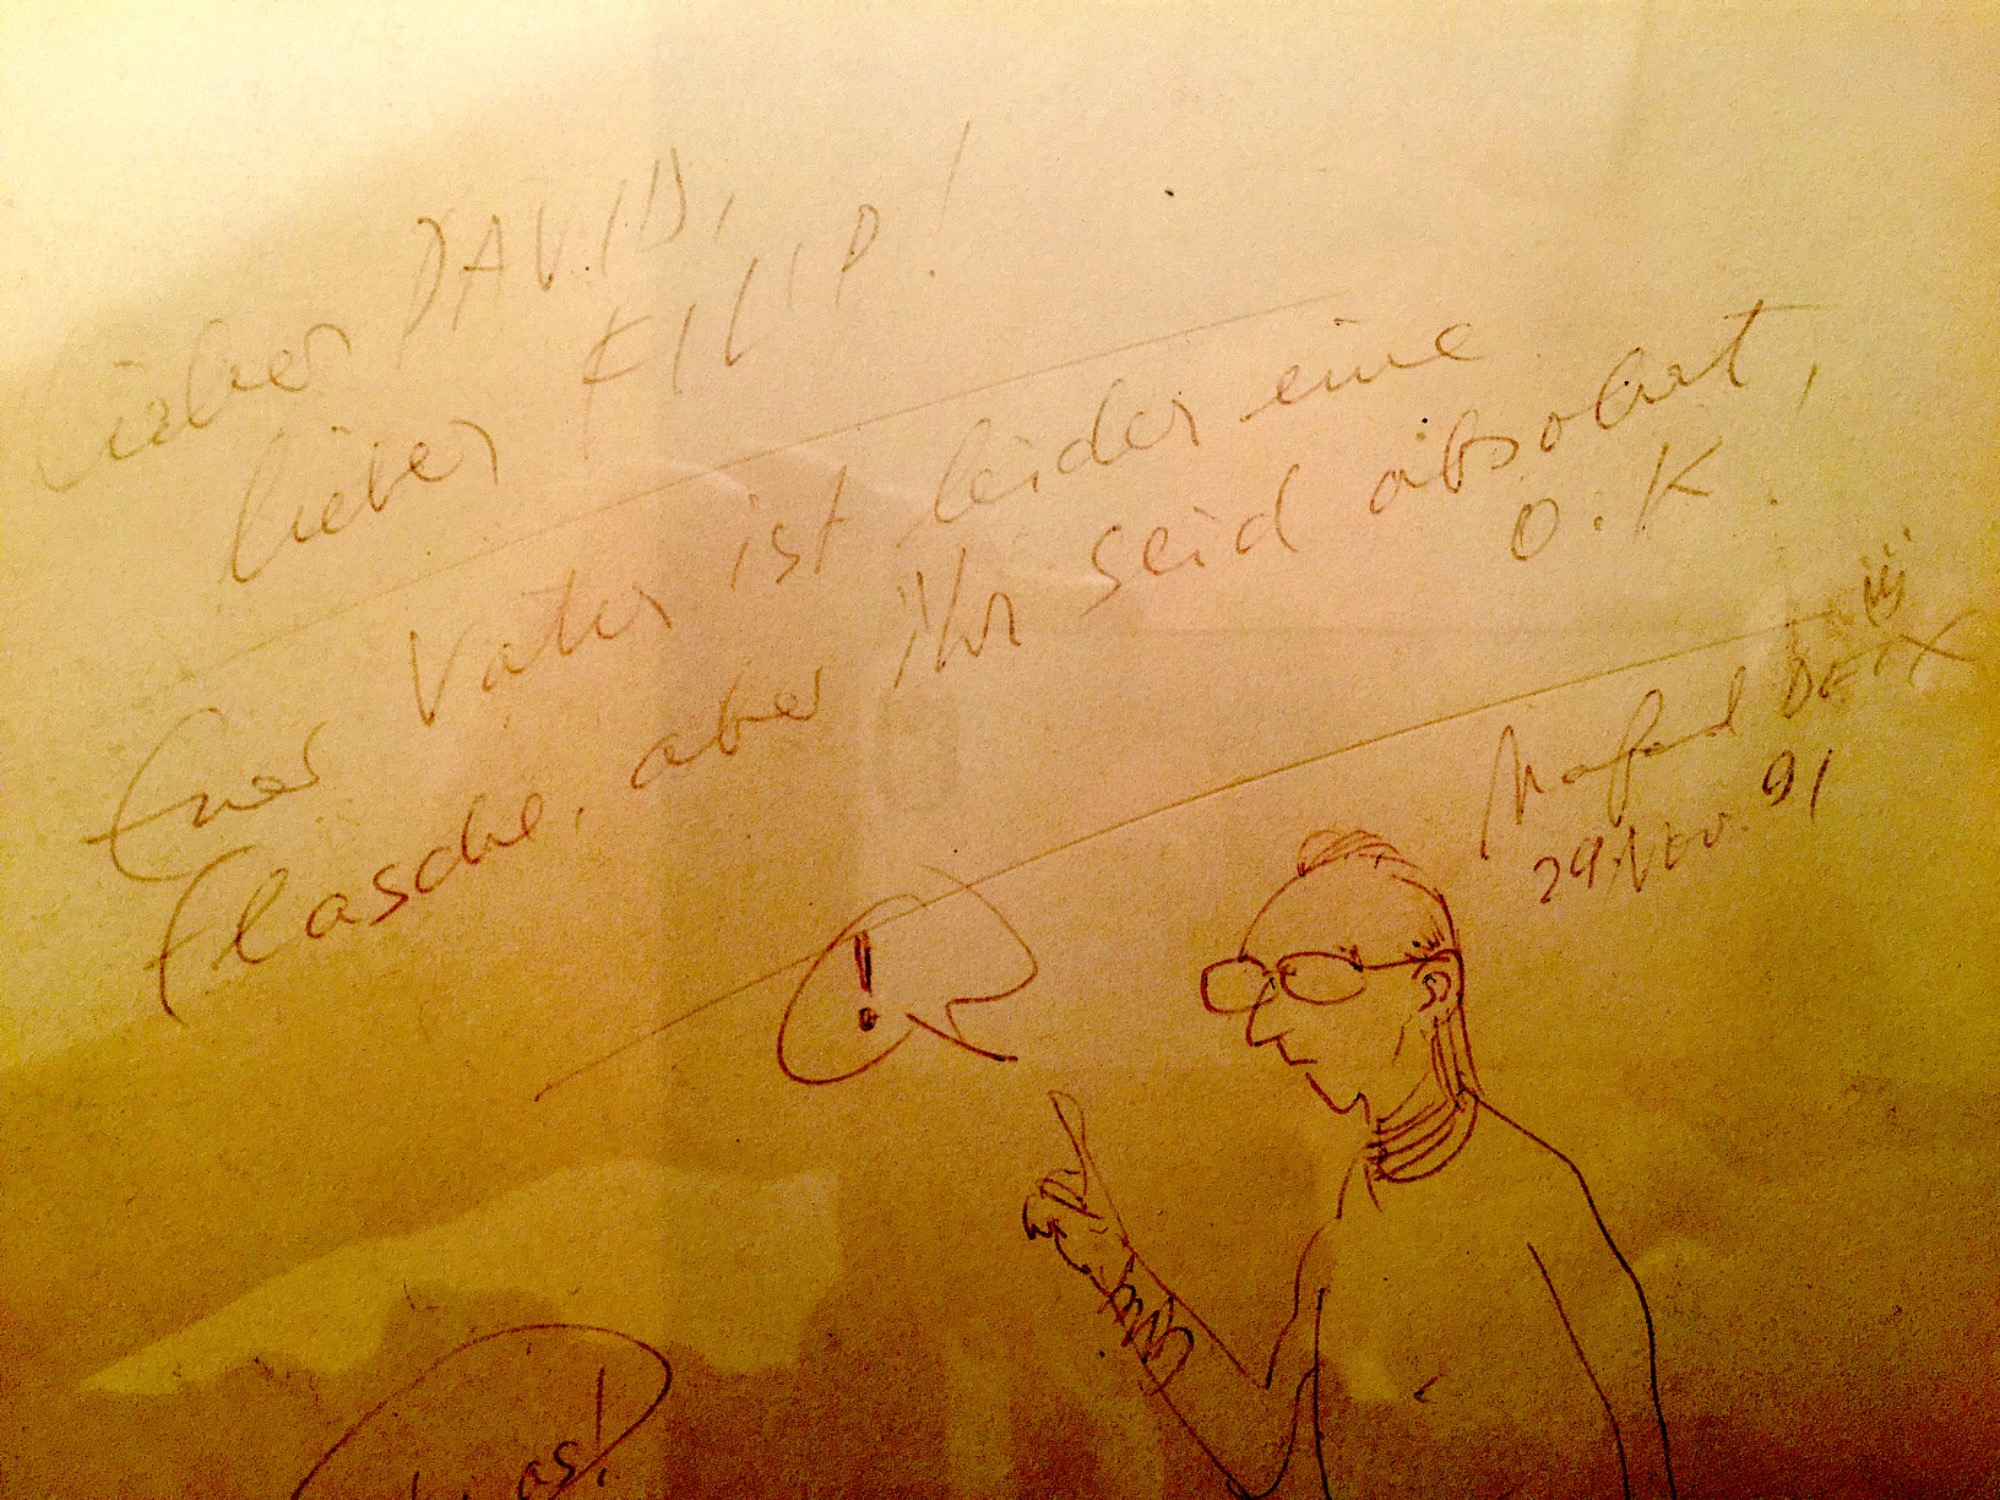 Lieber DAVID,
lieber FILIP!
Euer Vater ist leider eine
Flasche, aber ihr seid absolut
O.K.
Manfred DEIX
29. Nov. 91
!
as!